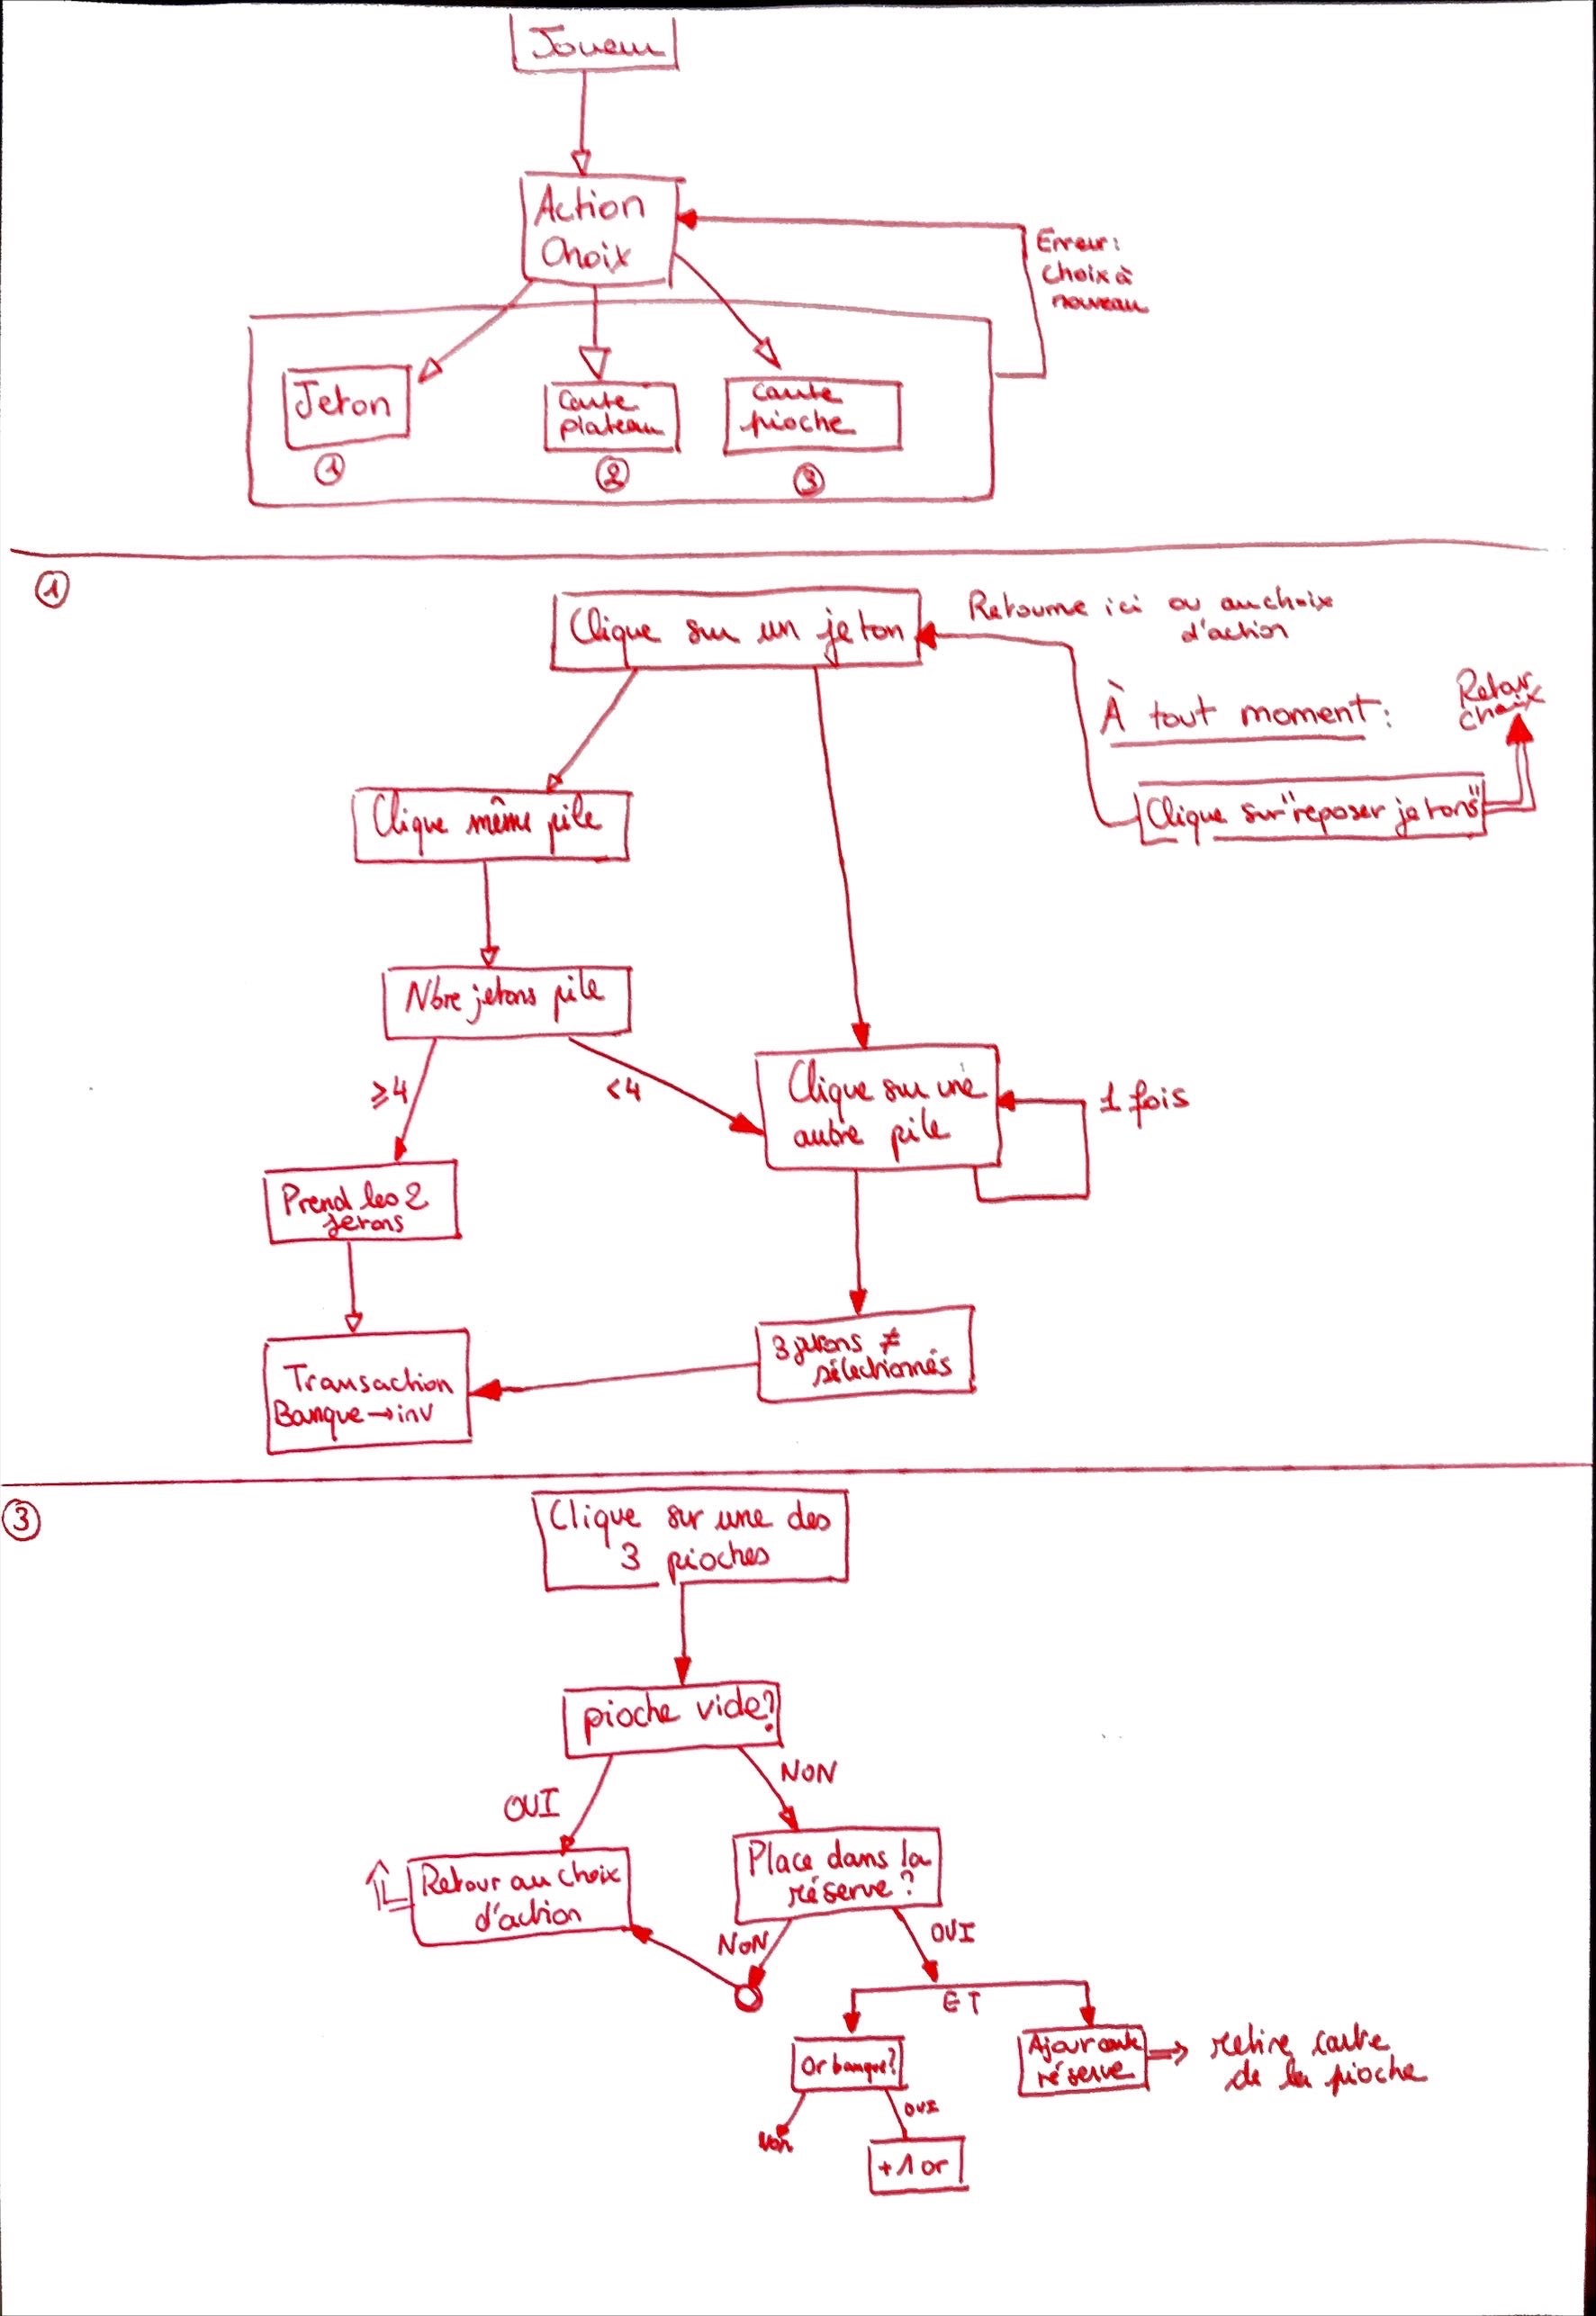 Joueur
Action
Choix
Erreur:
Choix à
nouveau
Jeton
Carte
plateau
Carte
pioche
①
②
③
①
Clique sur un jeton
Retourne ici ou au choix
d'action
À tout moment:
Retour
choix
Clique sur "reposer jetons"
Clique même pile
Nbre jetons pile
≥4
<4
Clique sur une
autre pile
1 fois
Prend les 2
jetons
3 jetons ≠
sélectionnés
Transaction
Banque → inv
③
Clique sur une des
3 pioches
pioche vide?
OUI
NON
Retour au choix
d'action
Place dans la
réserve?
NON
OUI
ET
Or banque?
Ajout carte
réserve
⇒ retire carte
de la pioche
Non
OUI
+1 or